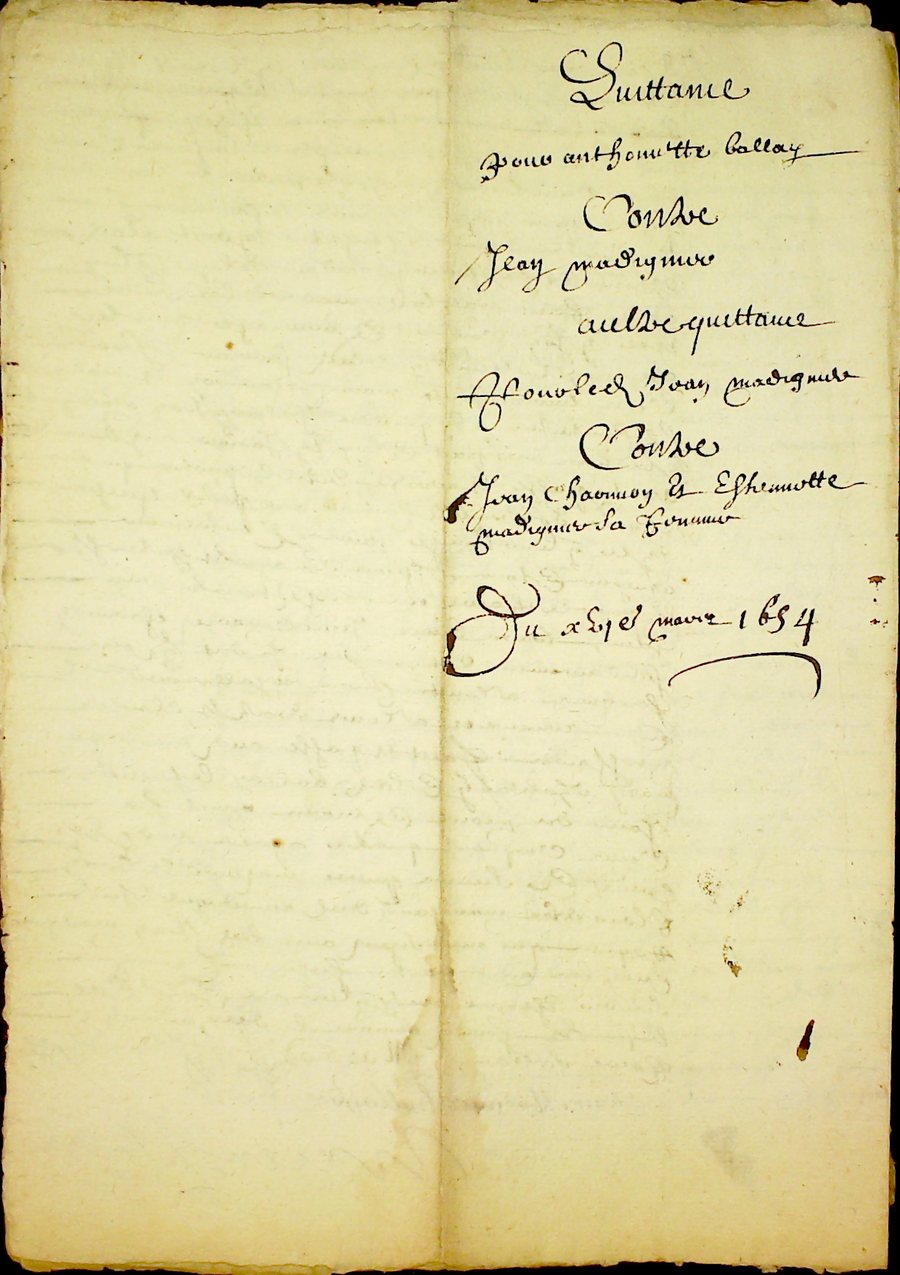 Quittance
Pour anthoinette ballay
Contre
Jean madignier
aultre quittance
Pour led Jean madignier
Contre
Jean Charmoy Et Estiennette
madignier sa femme
Du xvje mars 1654